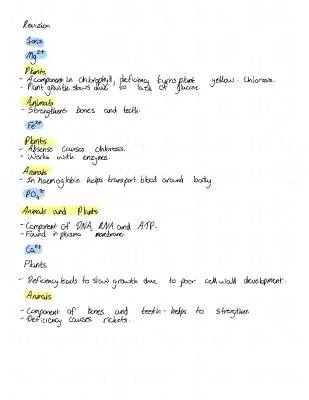 Revision
Ions
Mg²⁺
Plants
- A component in chlorophyll, deficiency turns plant yellow. Chlorosis.
- Plant growth slows due to lack of glucose.
Animals
- Strengthens bones and teeth.
Fe²⁺
Plants
- Absense causes chlorosis.
- Works with enzymes.
Animals
- In Haemoglobin helps transport blood around body
PO₄³⁻
Animals and Plants
- Component of DNA, RNA and ATP.
- Found in plasma membrane.
Ca²⁺
Plants
- Deficiency leads to slow growth due to poor cell wall development.
Animals
- Component of bones and teeth - helps to strengthen
- Deficiency causes rickets.